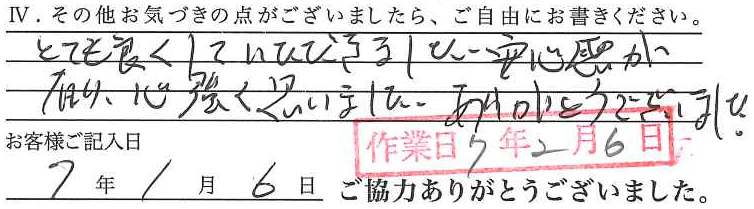 Ⅳ．その他お気づきの点がございましたら、ご自由にお書きください。
とても良くしていただきました。安心感が
有り、心強く思いました。ありがとうございました。
お客様ご記入日
作業日 7年2月6日
7年1月6日 ご協力ありがとうございました。